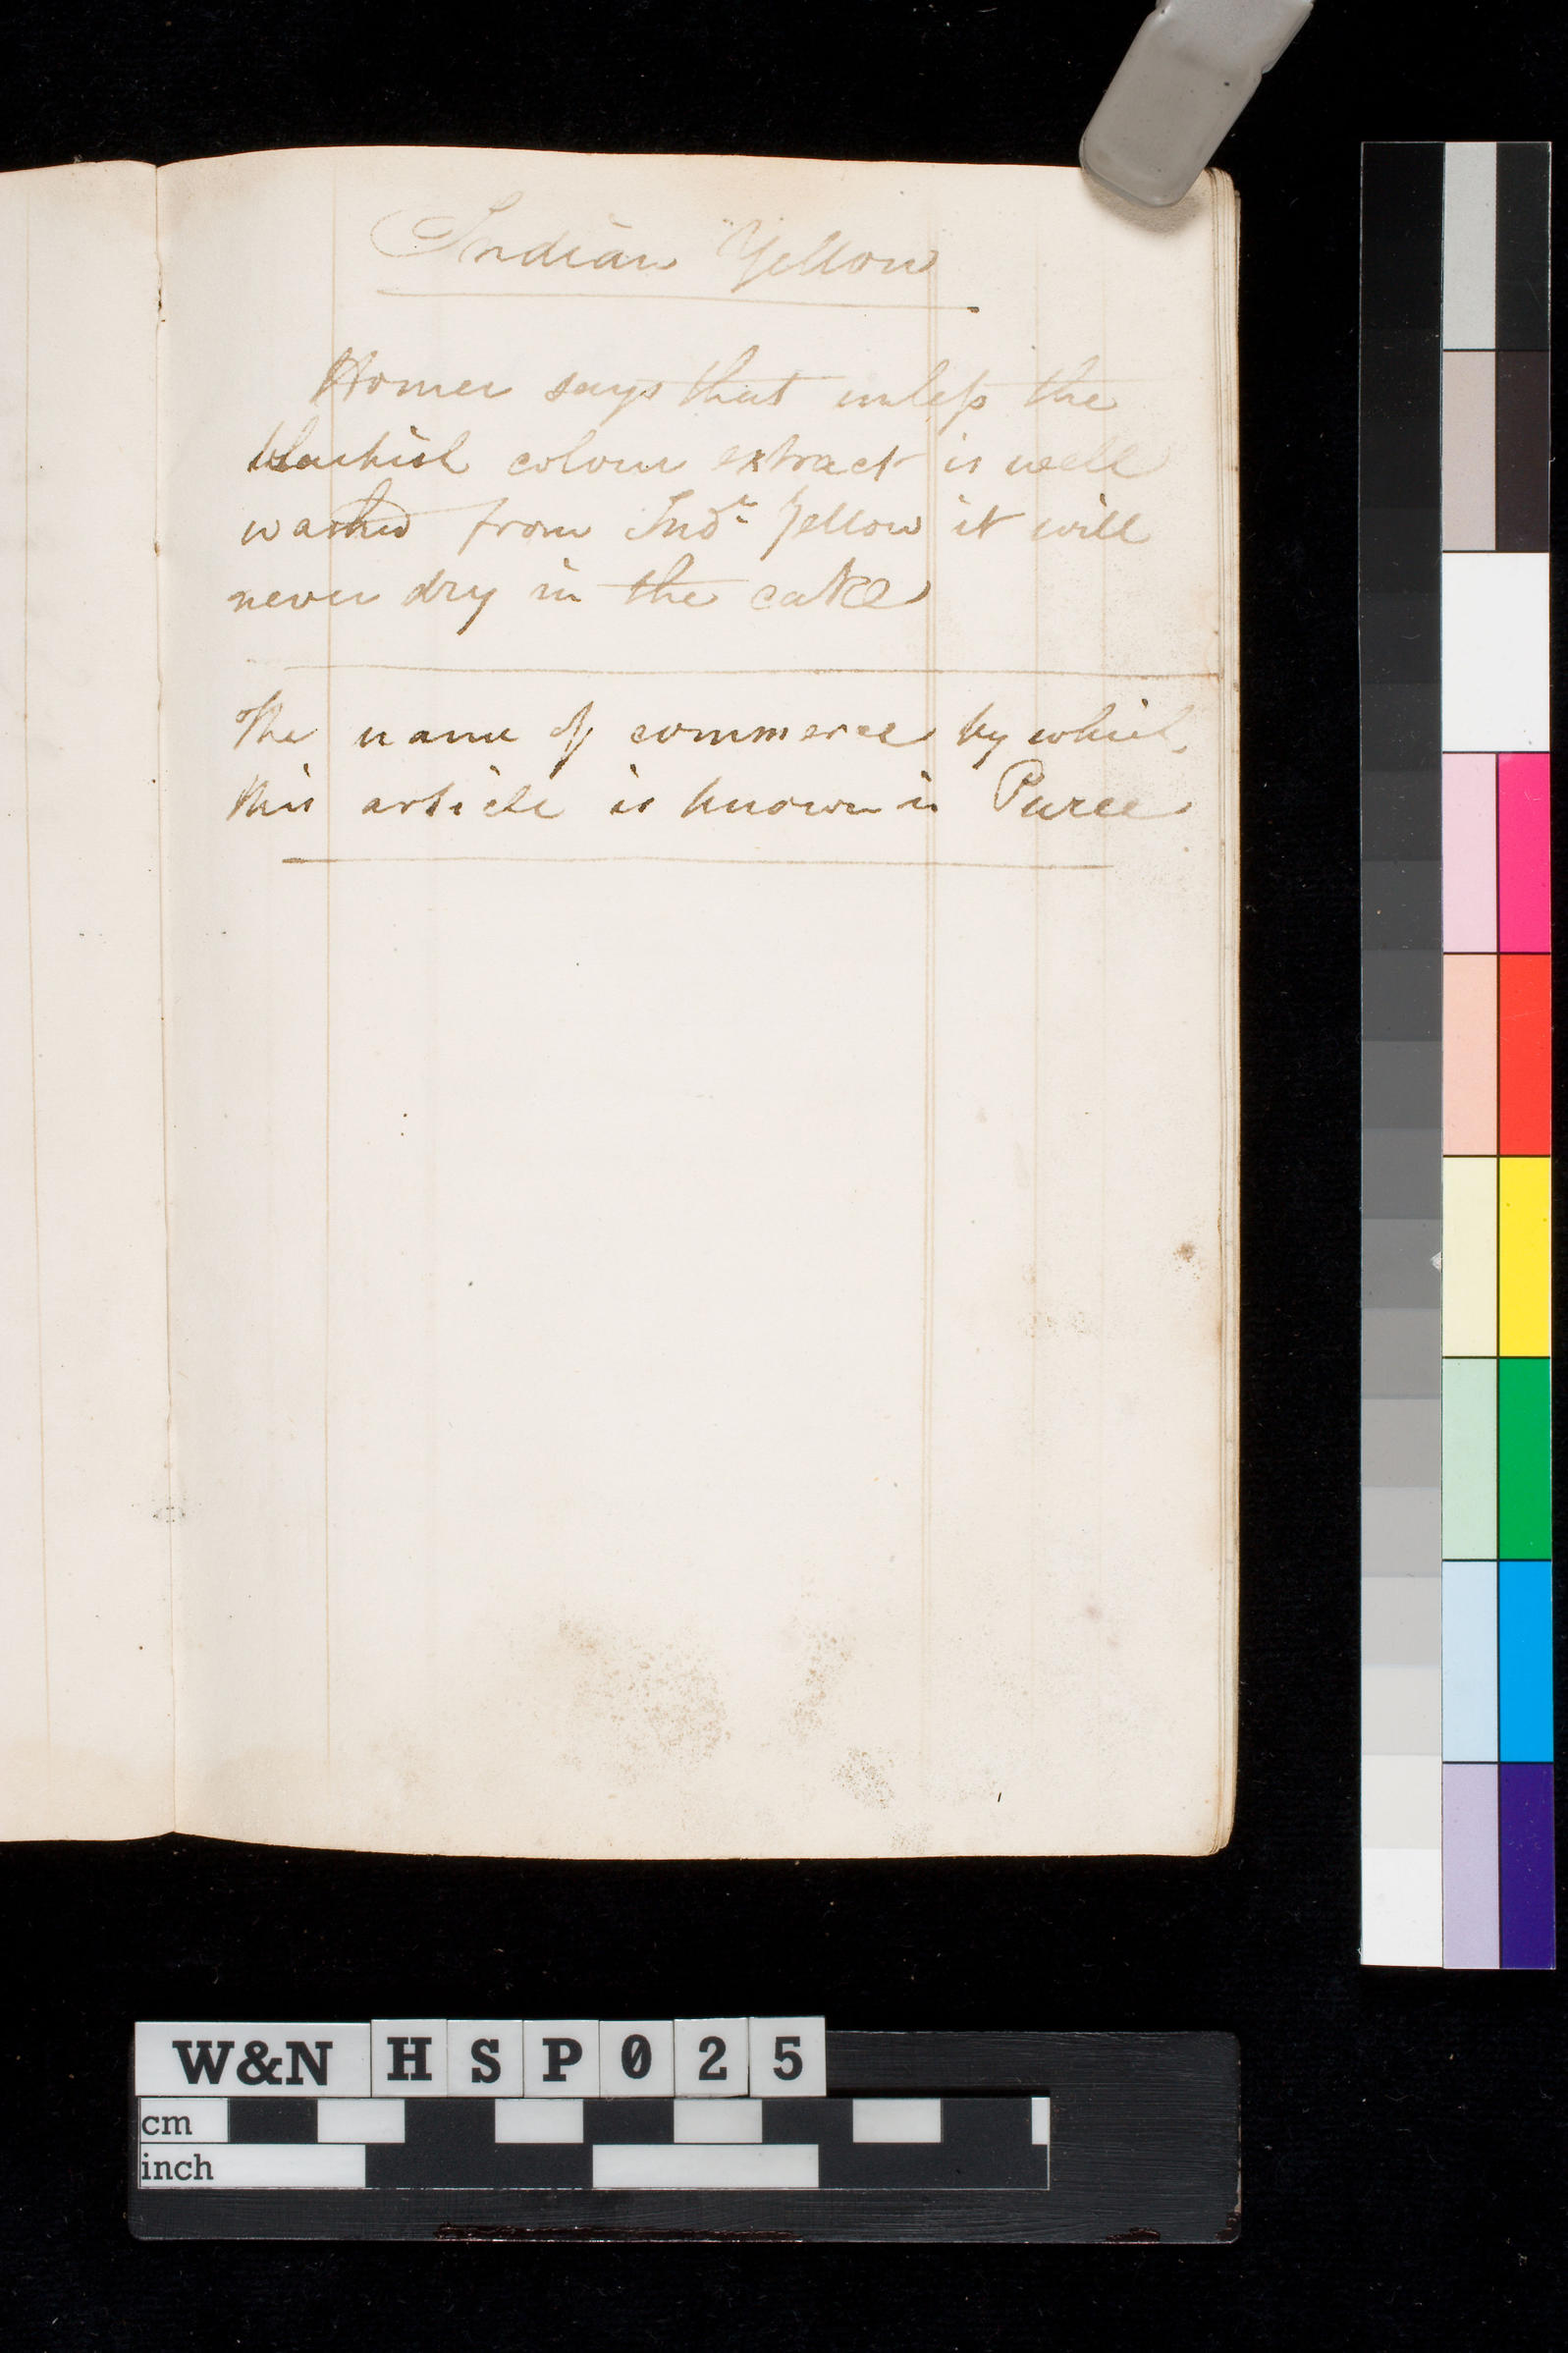 Indian Yellow
Homer says that unless the
blackish colour extract is well
washed from Indn Yellow it will
never dry in the cake
The name of commerce by which
this article is known is Puree
W&N HSP025
cm
inch